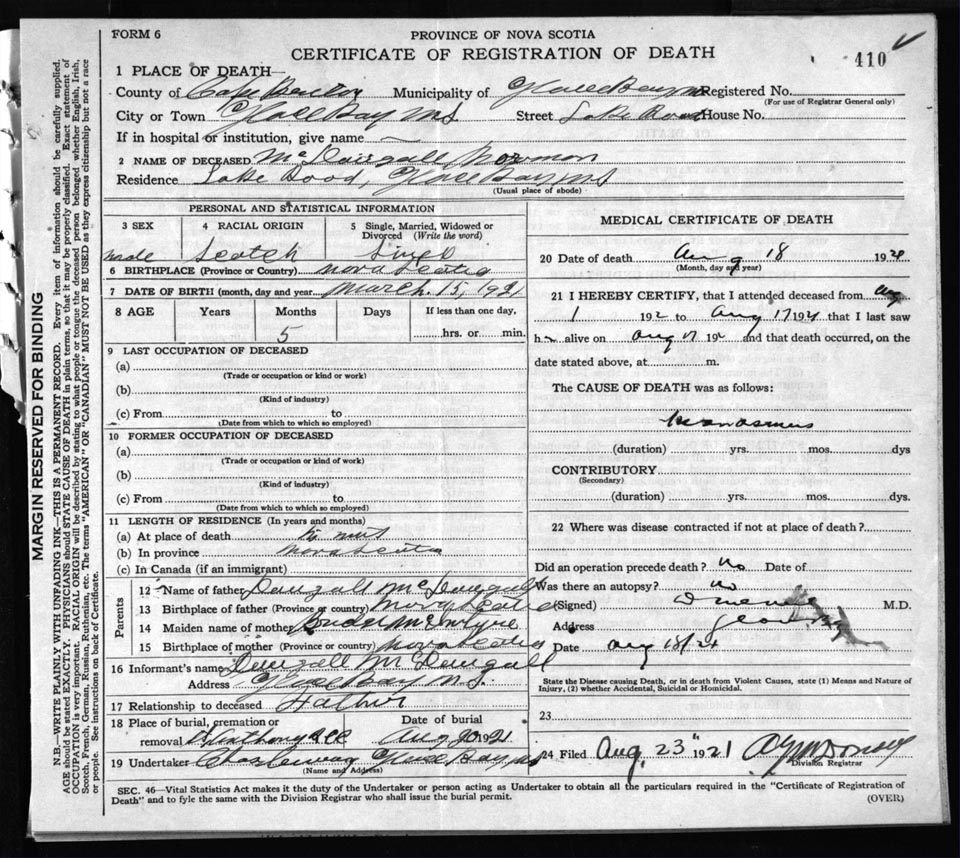 FORM 6
PROVINCE OF NOVA SCOTIA
CERTIFICATE OF REGISTRATION OF DEATH
410
1 PLACE OF DEATH—
County of Cape Breton Municipality of Glace Bay Registered No.
(For use of Registrar General only)
City or Town Glace Bay NS Street Lake Road House No.
If in hospital or institution, give name
2 NAME OF DECEASED McDougall Norman
Residence Lake Road, Glace Bay NS
(Usual place of abode)
PERSONAL AND STATISTICAL INFORMATION
3 SEX 4 RACIAL ORIGIN 5 Single, Married, Widowed or Divorced (Write the word)
male Scotch Single
6 BIRTHPLACE (Province or Country) Nova Scotia
7 DATE OF BIRTH (month, day and year) March. 15, 1921
8 AGE Years Months Days If less than one day,
5 hrs. or min.
9 LAST OCCUPATION OF DECEASED
(a)
(Trade or occupation or kind of work)
(b)
(Kind of industry)
(c) From to
(Date from which to which so employed)
10 FORMER OCCUPATION OF DECEASED
(a)
(Trade or occupation or kind of work)
(b)
(Kind of industry)
(c) From to
(Date from which to which so employed)
11 LENGTH OF RESIDENCE (In years and months)
(a) At place of death
(b) In province Nova Scotia
(c) In Canada (if an immigrant)
Parents
12 Name of father Dougall McDougall
13 Birthplace of father (Province or country) Nova Scotia
14 Maiden name of mother McIntyre
15 Birthplace of mother (Province or country) Nova Scotia
16 Informant's name Dougall McDougall
Address Glace Bay N.S.
17 Relationship to deceased Father
18 Place of burial, cremation or removal St Anthony Date of burial Aug 20 1921
19 Undertaker Glace Bay NS
(Name and Address)
MEDICAL CERTIFICATE OF DEATH
20 Date of death Aug 18 1921
(Month, day and year)
21 I HEREBY CERTIFY, that I attended deceased from Aug
1 192 to Aug 17 1921 that I last saw
h alive on Aug 17 192 and that death occurred, on the
date stated above, at m.
The CAUSE OF DEATH was as follows:
Marasmus
(duration) yrs. mos. dys
CONTRIBUTORY
(Secondary)
(duration) yrs. mos. dys.
22 Where was disease contracted if not at place of death?
Did an operation precede death? no Date of
Was there an autopsy? no
(Signed) M.D.
Address Glace Bay
Date Aug 18/21
State the Disease causing Death, or in death from Violent Causes, state (1) Means and Nature of
Injury, (2) whether Accidental, Suicidal or Homicidal.
23
24 Filed Aug 23" 1921
Division Registrar
SEC. 46—Vital Statistics Act makes it the duty of the Undertaker or person acting as Undertaker to obtain all the particulars required in the "Certificate of Registration of
Death" and to fyle the same with the Division Registrar who shall issue the burial permit.
(OVER)
MARGIN RESERVED FOR BINDING
N.B.—WRITE PLAINLY WITH UNFADING INK—THIS IS A PERMANENT RECORD. Every item of information should be carefully supplied.
AGE should be stated EXACTLY. PHYSICIANS should STATE CAUSE OF DEATH in plain terms, so that it may be properly classified. Exact statement of
OCCUPATION is very important. RACIAL ORIGIN will be described by stating to what people or tongue the deceased person belonged whether English, Irish,
Scotch, French, German, Russian, Ruthenian, etc. The terms "AMERICAN" OR "CANADIAN" MUST NOT BE USED as they express citizenship but not a race
or people. See instructions on back of Certificate.